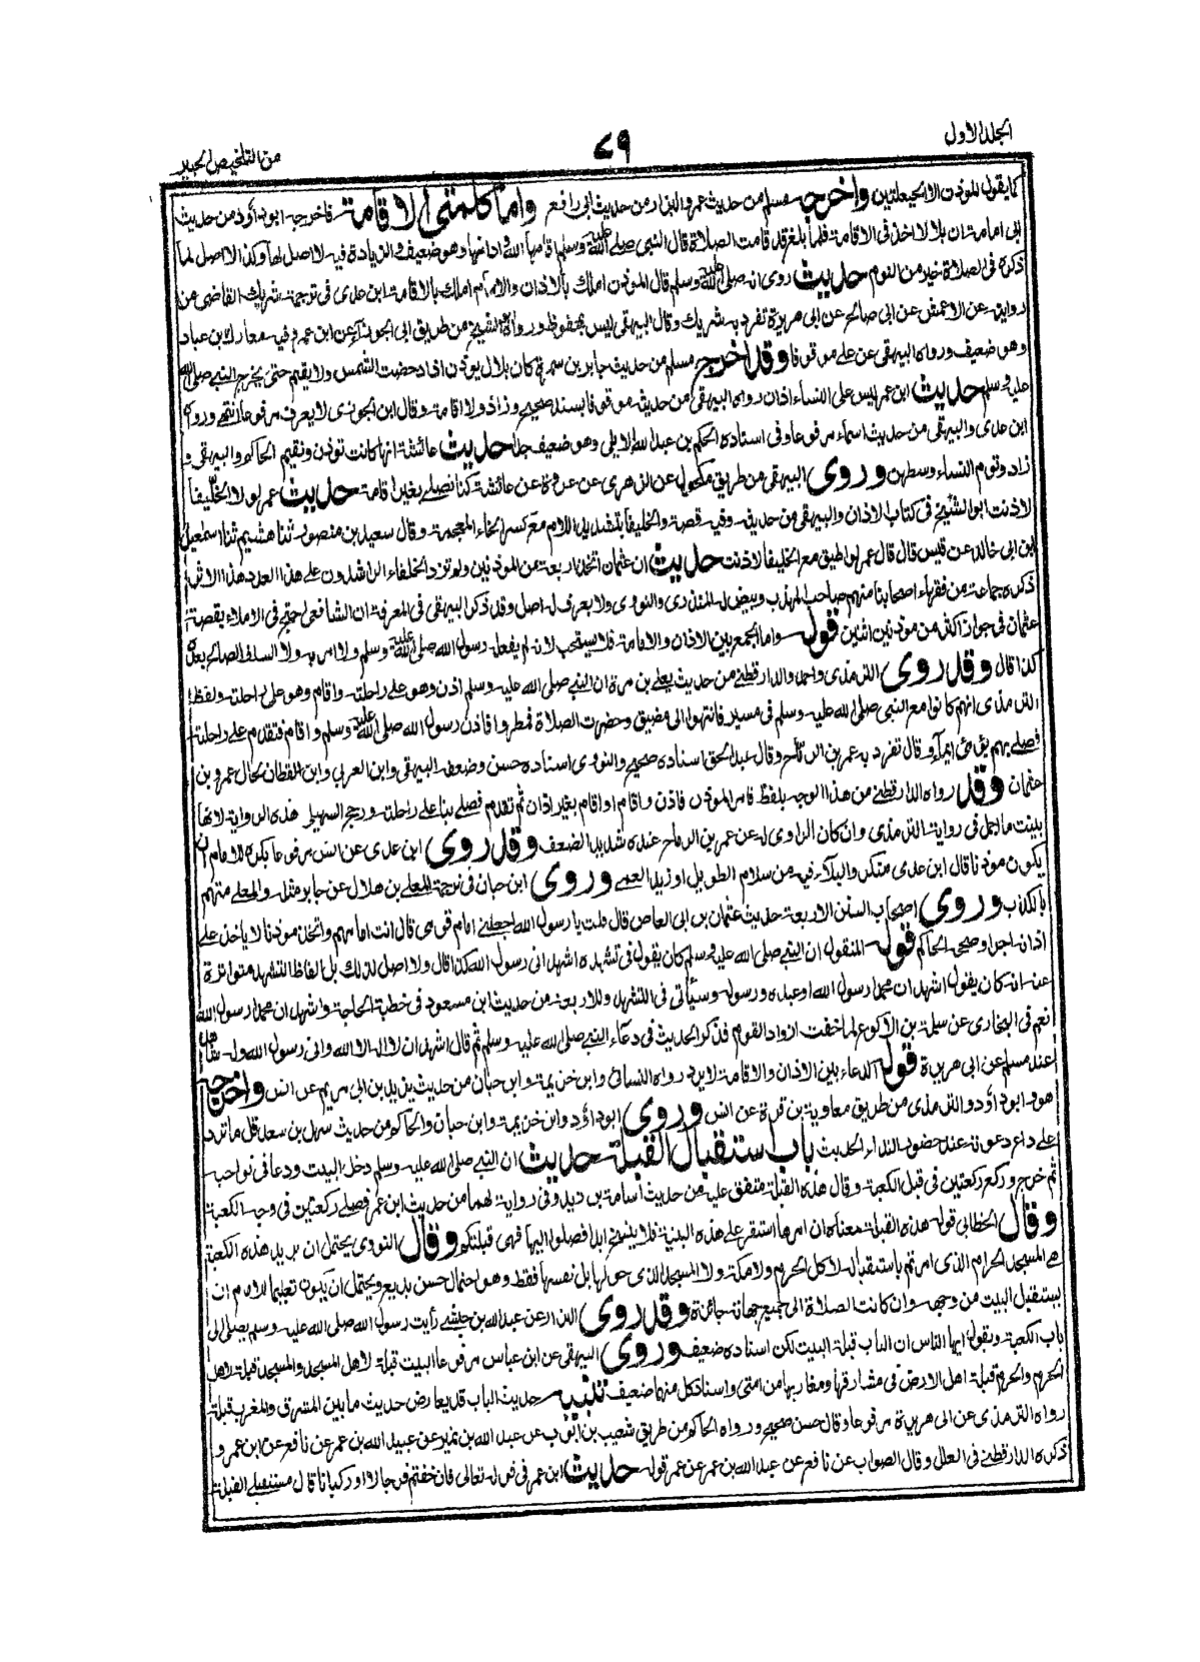 المجلد الاول
٧٩
من التلخيص الحبير
كما يقول المؤذن الا الحيعلتين واخرجه مسلم من حديث عمر والبزار من حديث ابى رافع واما كلمتى الاقامة فاخرجه ابوداؤد من حديث
ابى امامة ان بلالا اخذ فى الاقامة فلما بلغ قد قامت الصلاة قال النبى صلى الله عليه وسلم اقامها الله وادامها وهو ضعيف والزيادة فيه لا اصل لها وكذا لا اصل لما
ذكره فى الصلاة خير من النوم حديث روى انه صلى الله عليه وسلم قال المؤذن املك بالاذان والامام املك بالاقامة ابن عدى فى ترجمة شريك القاضى من
روايته عن الاعمش عن ابى صالح عن ابى هريرة تفرد به شريك وقال البيهقى ليس بمحفوظ ورواه ابو الشيخ من طريق ابى الجوزاء عن ابن عمر وفيه معارك بن عباد
وهو ضعيف ورواه البيهقى عن على موقوفا وقد اخرج مسلم من حديث جابر بن سمرة كان بلال يؤذن اذا دحضت الشمس ولا يقيم حتى يخرج النبى صلى الله
عليه وسلم حديث ابن عمر ليس على النساء اذان رواه البيهقى من حديثه موقوفا بسند صحيح وزاد ولا اقامة وقال ابن الجوزى لا يعرف مرفوعا انتهى ورواه
ابن عدى والبيهقى من حديث اسماء مرفوعا وفى اسناده الحكم بن عبد الله الايلى وهو ضعيف جدا حديث عائشة انها كانت تؤذن وتقيم الحاكم والبيهقى و
زاد وتؤم النساء وسطهن وروى البيهقى من طريق مكحول عن الزهرى عن عروة عن عائشة كنا نصلى بغير اقامة حديث عمر لولا الخليفا
لاذنت ابو الشيخ فى كتاب الاذان والبيهقى من حديثه وفيه قصة والخليفا بتشديد اللام مع كسر الخاء المعجمة وقال سعيد بن منصور ثنا هشيم ثنا اسمعيل
ابن ابى خالد عن قيس قال قال عمر لو اطيق مع الخليفا لاذنت حديث ان عثمان اتخذ اربعة من المؤذنين ولم تزد الخلفاء الراشدون على هذا العدد هذا الاثر
ذكره جماعة من فقهاء اصحابنا منهم صاحب المهذب وبيض له المنذرى والنووى ولا يعرف له اصل وقد ذكر البيهقى فى المعرفة ان الشافعى احتج فى الاملاء بقصة
عثمان فى جواز اكثر من مؤذنين اثنين قوله واما الجمع بين الاذان والامامة فلا يستحب لانه لم يفعله رسول الله صلى الله عليه وسلم ولا امر به ولا السلف الصالح بعده
كذا قال وقد روى الترمذى واحمد والدارقطنى من حديث يعلى بن مرة ان النبى صلى الله عليه وسلم اذن وهو على راحلته واقام وهو على راحلته ولفظ
الترمذى انهم كانوا مع النبى صلى الله عليه وسلم فى مسير فانتهوا الى مضيق وحضرت الصلاة فمطروا فاذن رسول الله صلى الله عليه وسلم واقام فتقدم على راحلته
فصلى بهم يؤمئ ايماء وقال تفرد به عمر بن الرماح وقال عبد الحق اسناده صحيح والنووى اسناده حسن وضعفه البيهقى وابن العربى وابن القطان لحال عمرو بن
عثمان وقد رواه الدارقطنى من هذا الوجه بلفظ فامر المؤذن فاذن واقام او اقام بغير اذان ثم تقدم فصلى بنا على راحلته ورجح السهيلى هذه الرواية لانها
بينت ما اجمل فى رواية الترمذى وان كان الراوى له عن عمر بن الرماح عنده شديد الضعف وقد روى ابن عدى عن انس مرفوعا يكره للامام ان
يكون مؤذنا قال ابن عدى منكر والبلاء فيه من سلام الطويل او زيد العمى وروى ابن حبان فى ترجمة المعلى بن هلال عن جابر مثله والمعلى متهم
بالكذب وروى اصحاب السنن الاربعة حديث عثمان بن ابى العاص قال قلت يا رسول الله اجعلنى امام قومى قال انت امامهم واتخذ مؤذنا لا ياخذ على
اذانه اجرا وصححه الحاكم قوله المنقول ان النبى صلى الله عليه وسلم كان يقول فى تشهده اشهد انى رسول الله كذا قال ولا اصل لذلك بل الفاظ التشهد متواترة
عنه انه كان يقول اشهد ان محمدا رسول الله او عبده ورسوله وسيأتى فى التشهد وللاربعة من حديث ابن مسعود فى خطبة الحاجة واشهد ان محمدا رسول الله
نعم فى البخارى عن سلمة بن الاكوع لما خفت ازواد القوم فذكر الحديث فى دعاء النبى صلى الله عليه وسلم ثم قال اشهد ان لا اله الا الله وانى رسول الله وله شاهد
عند مسلم عن ابى هريرة قوله الدعاء بين الاذان والاقامة لا يرد رواه النسائى وابن خزيمة وابن حبان من حديث يزيد بن ابى مريم عن انس واخرجه
هو وابوداؤد والترمذى من طريق معاوية بن قرة عن انس وروى ابوداؤد وابن خزيمة وابن حبان والحاكم من حديث سهل بن سعد قل ما ترد
على داع دعوته عند حضور النداء الحديث باب استقبال القبلة حديث ان النبى صلى الله عليه وسلم دخل البيت ودعا فى نواحيه
ثم خرج وركع ركعتين فى قبل الكعبة وقال هذه القبلة متفق عليه من حديث اسامة بن زيد وفى رواية لهما من حديث ابن عمر فصلى ركعتين فى وجه الكعبة
وقال الخطابى قوله هذه القبلة معناه ان امرها استقر على هذه البنية فلا ينسخ ابدا فصلوا اليها فهى قبلتكم وقال النووى يحتمل ان يريد هذه الكعبة
هى المسجد الحرام الذى امرتم باستقباله لا كل الحرم ولا مكة ولا المسجد الذى حولها بل نفسها فقط وهو احتمال حسن بديع ويحتمل ان يكون تعليما للامام ان
يستقبل البيت من وجهه وان كانت الصلاة الى جميع جهاته جائزة وقد روى البزار عن عبد الله بن حبشى رأيت رسول الله صلى الله عليه وسلم يصلى الى
باب الكعبة ويقول ايها الناس ان الباب قبلة البيت لكن اسناده ضعيف وروى البيهقى عن ابن عباس مرفوعا البيت قبلة لاهل المسجد والمسجد قبلة لاهل
الحرم والحرم قبلة اهل الارض فى مشارقها ومغاربها من امتى واسناد كل منهما ضعيف تنبيه حديث الباب قد يعارض حديث ما بين المشرق والمغرب قبلة
رواه الترمذى عن ابى هريرة مرفوعا وقال حسن صحيح ورواه الحاكم من طريق شعيب بن ايوب عن عبد الله بن نمير عن عبيد الله بن عمر عن نافع عن ابن عمر و
ذكره الدارقطنى فى العلل وقال الصواب عن نافع عن عبد الله بن عمر عن عمر قوله حديث ابن عمر فى قوله تعالى فان خفتم فرجالا او ركبانا قال مستقبلى القبلة